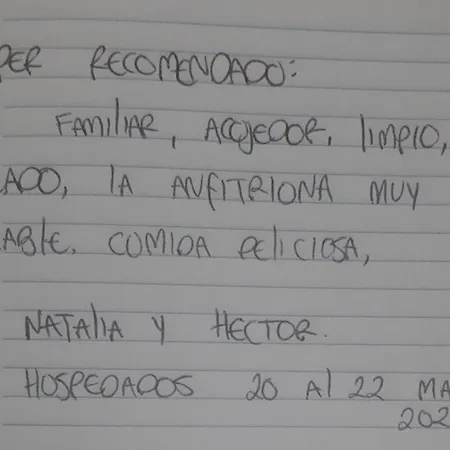 PER RECOMENDADO:
FAMILIAR, ACOJEDOR, LIMPIO,
ADO, LA ANFITRIONA MUY
ABLE, COMIDA DELICIOSA,
NATALIA Y HECTOR.
HOSPEDADOS 20 AL 22 MA
202